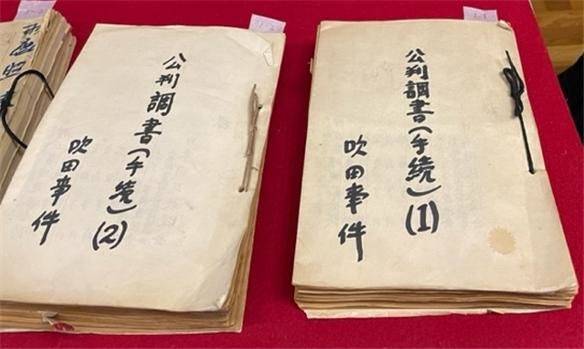 公判調書(手続)(1)
吹田事件
公判調書(手続)(2)
吹田事件